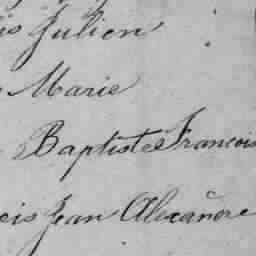 is Julien
Marie
Baptiste Francois
cis Jean Alexandre